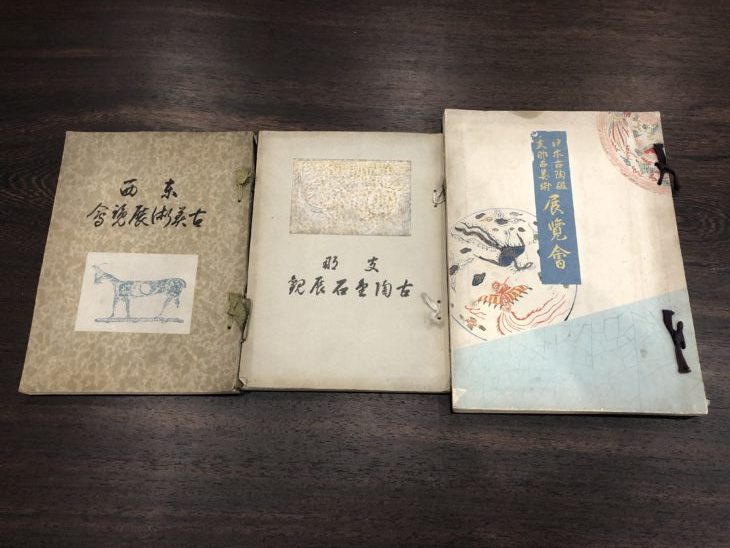 東西
古美術展覧會
支那
古陶金石展観
日本古陶磁
支那古美術
展覽會